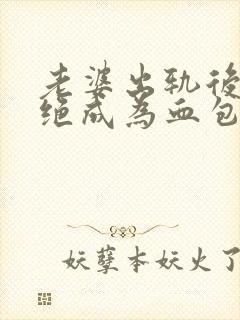 老婆出轨後
绝成為血包
妖孽本妖火了